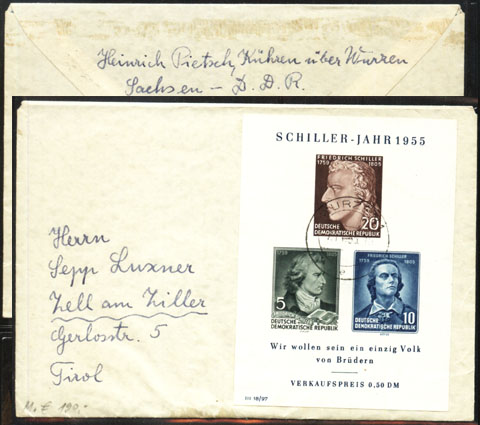 Heinrich Pietsch, Kühren über Wurzen
Sachsen – D. D. R.
SCHILLER-JAHR 1955
FRIEDRICH SCHILLER
1759 1805
20
DEUTSCHE
DEMOKRATISCHE REPUBLIK
1759 1805
5
DEUTSCHE
DEMOKRATISCHE REPUBLIK
FRIEDRICH SCHILLER
1759 1805
10
DEUTSCHE
DEMOKRATISCHE REPUBLIK
Wir wollen sein ein einzig Volk
von Brüdern
VERKAUFSPREIS 0,50 DM
III 18/97
Herrn
Sepp Luxner
Zell am Ziller
Gerlosstr. 5
Tirol
M.€ 190.-